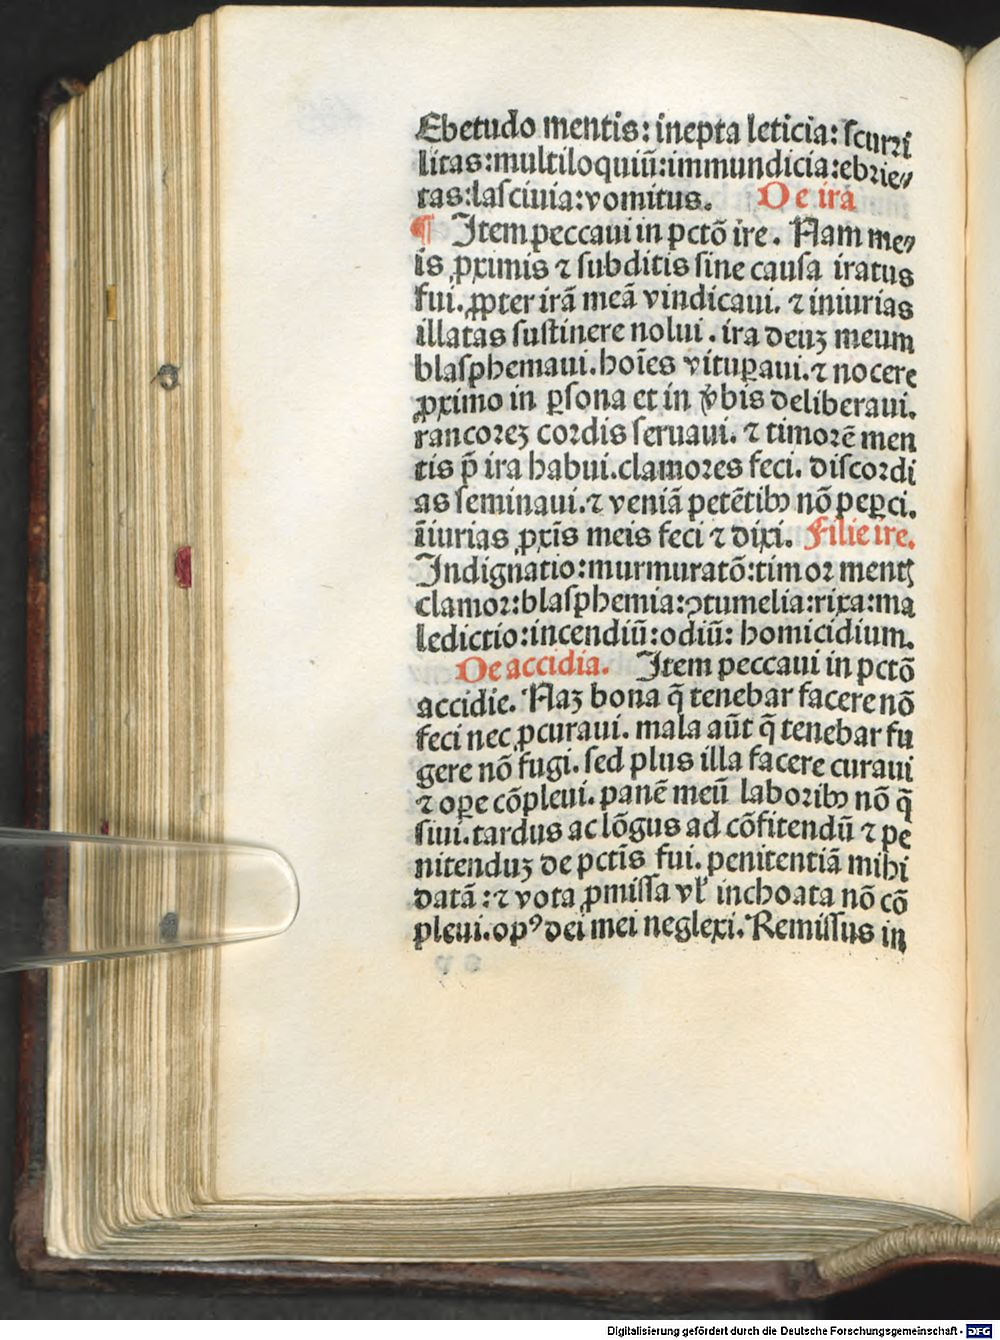 Ebetudo mentis: inepta leticia: ſcurri
litas:multiloquiũ:immundicia:ebrie⸗
tas:laſciuia:vomitus. De ira
¶ Item peccaui in pctõ ire. Nam me⸗
is ꝓximis ⁊ ſubditis ſine cauſa iratus
fui. ꝓpter irã meã vindicaui. ⁊ iniurias
illatas ſuſtinere nolui. ira deuꝫ meum
blaſphemaui. hoĩes vituꝑaui. ⁊ nocere
ꝓximo in ꝑſona et in v̾bis deliberaui.
rancoreꝫ cordis ſeruaui. ⁊ timorẽ men
tis p̃ ira habui. clamores feci. diſcordi
as ſeminaui. ⁊ veniã petẽtibꝰ nõ peꝑci.
ĩiurias ꝓxĩs meis feci ⁊ dixi. Filie ire.
Indignatio:murmuratõ:timor mentꝭ
clamor:blaſphemia:ꝯtumelia:rixa:ma
ledictio:incendiũ:odiũ: homicidium.
De accidia. Item peccaui in pctõ
accidie. Naꝫ bona q̃ tenebar facere nõ
feci nec ꝓcuraui. mala aũt q̃ tenebar fu
gere nõ fugi. ſed plus illa facere curaui
⁊ oꝑe cõpleui. panẽ meũ laboribꝰ nõ q̃
ſiui. tardus ac lõgus ad cõfitendũ ⁊ pe
nitenduꝫ de pctĩs fui. penitentiã mihi
datã: ⁊ vota ꝓmiſſa vl̕ inchoata nõ cõ
pleui. opꝰ dei mei neglexi. Remiſſus in
Digitalisierung gefördert durch die Deutsche Forschungsgemeinschaft - DFG